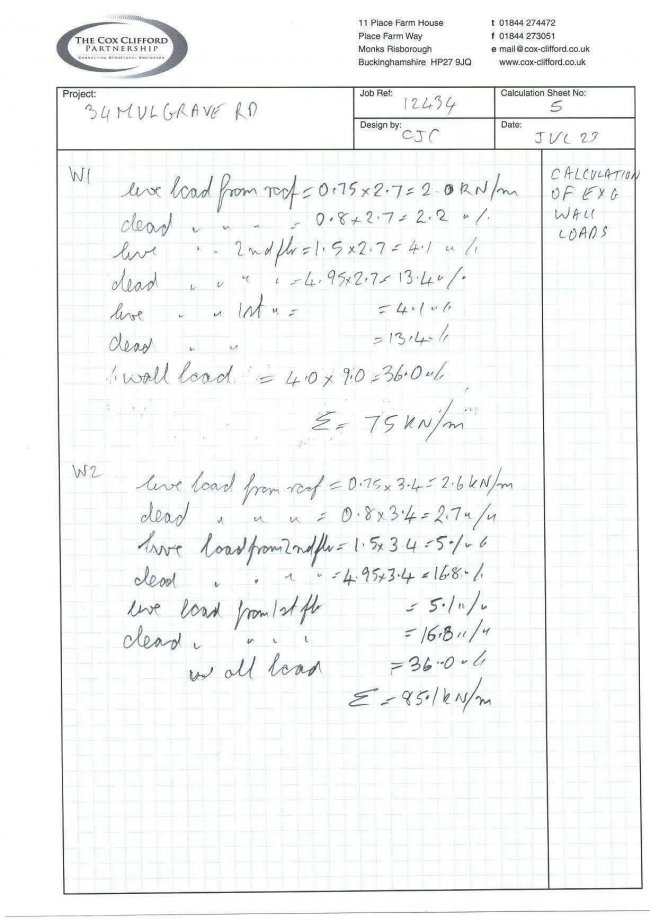 THE COX CLIFFORD
PARTNERSHIP
CONSULTING STRUCTURAL ENGINEERS
11 Place Farm House
Place Farm Way
Monks Risborough
Buckinghamshire HP27 9JQ
t 01844 274472
f 01844 273051
e mail@cox-clifford.co.uk
www.cox-clifford.co.uk
Project:
34 MULGRAVE RD
Job Ref:
12434
Calculation Sheet No:
5
Design by:
CJC
Date:
JUL 23
CALCULATION
OF EXG
WALL
LOADS
W1
live load from roof = 0.75 x 2.7 = 2.0 KN/m
dead " " " = 0.8 x 2.7 = 2.2 "/"
live " " 2nd flr = 1.5 x 2.7 = 4.1 "/"
dead " " " " = 4.95 x 2.7 = 13.4 "/"
live " " 1st " = = 4.1 "/"
dead " " = 13.4 "/"
wall load = 4.0 x 9.0 = 36.0 "/"
Σ = 75 KN/m
W2
live load from roof = 0.75 x 3.4 = 2.6 KN/m
dead " " " = 0.8 x 3.4 = 2.7 "/"
live load from 2nd flr = 1.5 x 3.4 = 5.1 "/"
dead " " " " = 4.95 x 3.4 = 16.8 "/"
live load from 1st flr = 5.1 "/"
dead " " " " = 16.8 "/"
wall load = 36.0 "/"
Σ = 85.1 KN/m